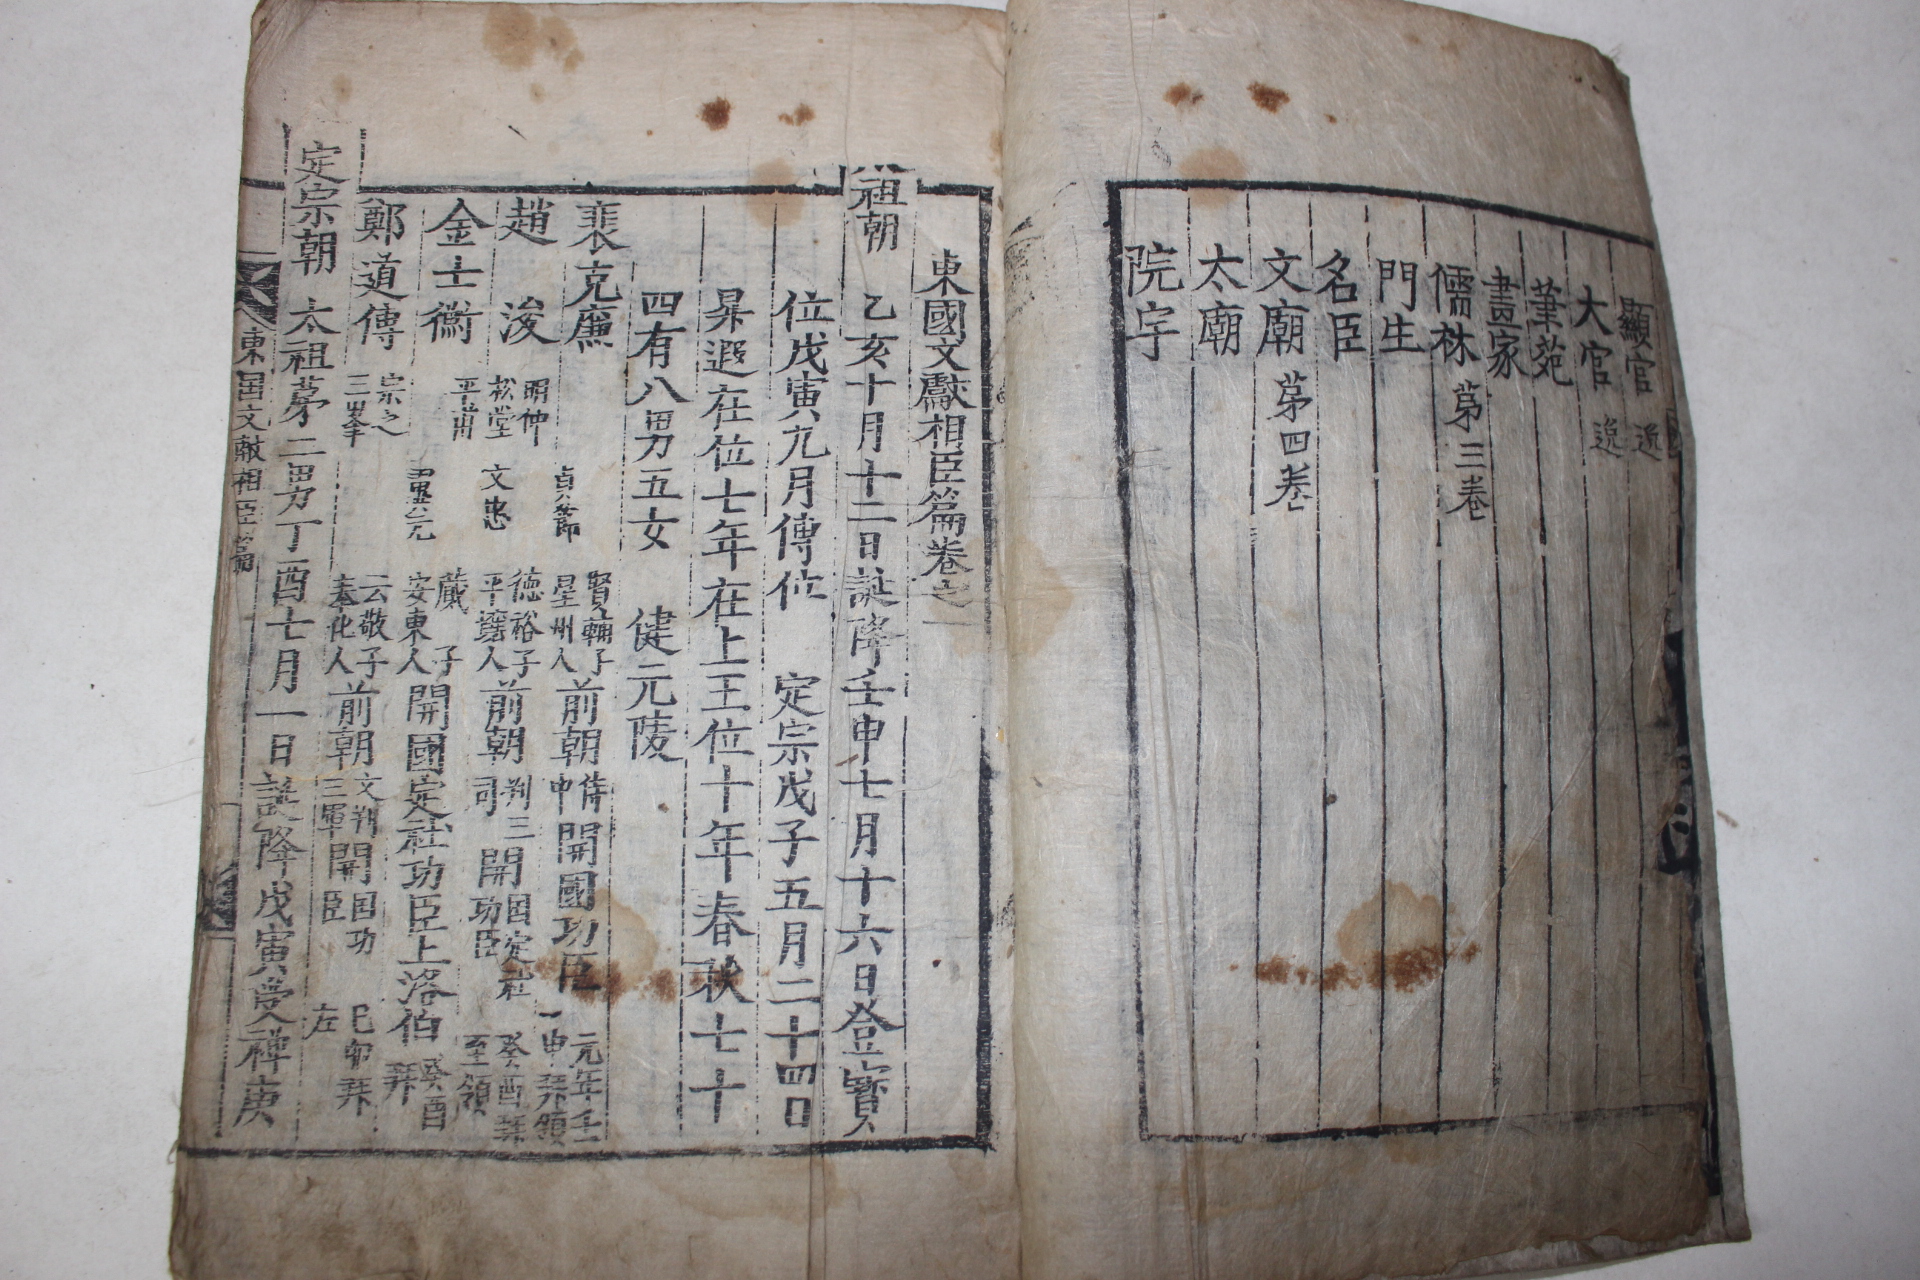 顯官
大官
筆苑
畫家
儒林 苐三卷
門生
名臣
文廟 苐四卷
太廟
院宇
東國文獻相臣篇卷之一
祖朝 乙亥十月十二日誕降壬申七月十六日登寶
位戊寅九月傳位 定宗戊子五月二十四日
昇遐在位七年在上王位十年春秋七十
四有八男五女 健元陵
裴克廉 貞節 賢輔子 星州人 前朝 侍中 開國功臣 元年壬申拜領
趙浚 明仲 松堂 文忠 德裕子 平壤人 前朝 判三司 開國定社功臣 癸酉拜 至領
金士衡 平甫 翼元 蕆子 安東人 開國定社功臣上洛伯 癸酉拜
鄭道傳 宗之 三峯 云敬子 奉化人 前朝 文判 三軍 開国功臣 己卯拜左
定宗朝 太祖苐二男丁酉七月一日誕降戊寅受禪庚
東国文献相臣篇